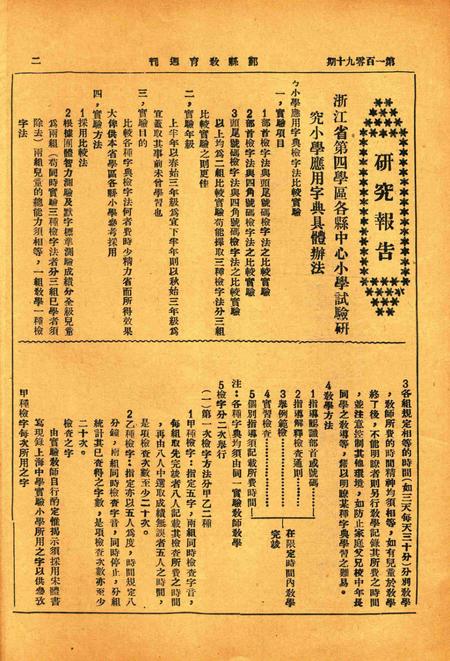 第一百零九十期
鄞縣教育週刊
二
研究報告
浙江省第四學區各縣中心小學試驗研
究小學應用字典具體辦法
ㄅ小學應用字典檢字法比較實驗
一，實驗項目
1部首檢字法與頭尾號碼檢字法之比較實驗
2部首檢字法與四角號碼檢字法之比較實驗
3頭尾號碼檢字法與四角號碼檢字法之比較實驗
以上均爲二組比較實驗苟能採取三種檢字法分三組
比較實驗之則更佳
二，實驗年級
上半年以春始三年級爲宜下半年則以秋始三年級爲
宜蓋取其事前未曾學習也
三，實驗目的
比較各種字典檢字法何者費時少精力省而所得效果
大俾供本省學區各縣小學參考採用
四，實驗方法
1採用比較法
2根據團體智力測驗及默字標準測驗成績分全級兒童
爲兩組（苟同時實驗三種檢字法者分三組已學者須
除去）兩組兒童的總能力須相等，一組教學一種檢
字法
3各組規定相等的時間（如三天每天三十分）分別教學
，教師所費的時間精神均須相等，如有兒童於教學
終了後，不能明瞭者則另行教學記錄其所費之時間
，並注意控制其他環境，如防止家庭父兄校中年長
同學之教導等，藉以明瞭某種字典學習之難易。
4教學方法
1指導認識部首或號碼
2指導解釋檢查通則
3舉例範檢
4實習檢查
在限定時間內教學
完談
5個別指導須記載所費時間
注：各種字典均須由同一實驗教師教學
5檢字分二次舉行
（一）第一次檢字方法分甲乙二種
1甲種檢字：指定五字，兩組同時檢查字音，
每組取先完談者八人記載其檢查所費之時間
，再由八人中選取成績無誤者五人之時間，
是項檢查次數至少二十次。
2乙種檢字：指定亦以五人爲度，時間規定八
分鐘，兩組同時檢查字音，同時停止，分組
統計其已查得之字數，是項檢查次數亦至少
二十次。
檢查之字
由實驗教師自行酌定惟揭示須採用宋體書
寫現錄上海中學實驗小學所用之字以供參攷
甲種檢字每次所用之字